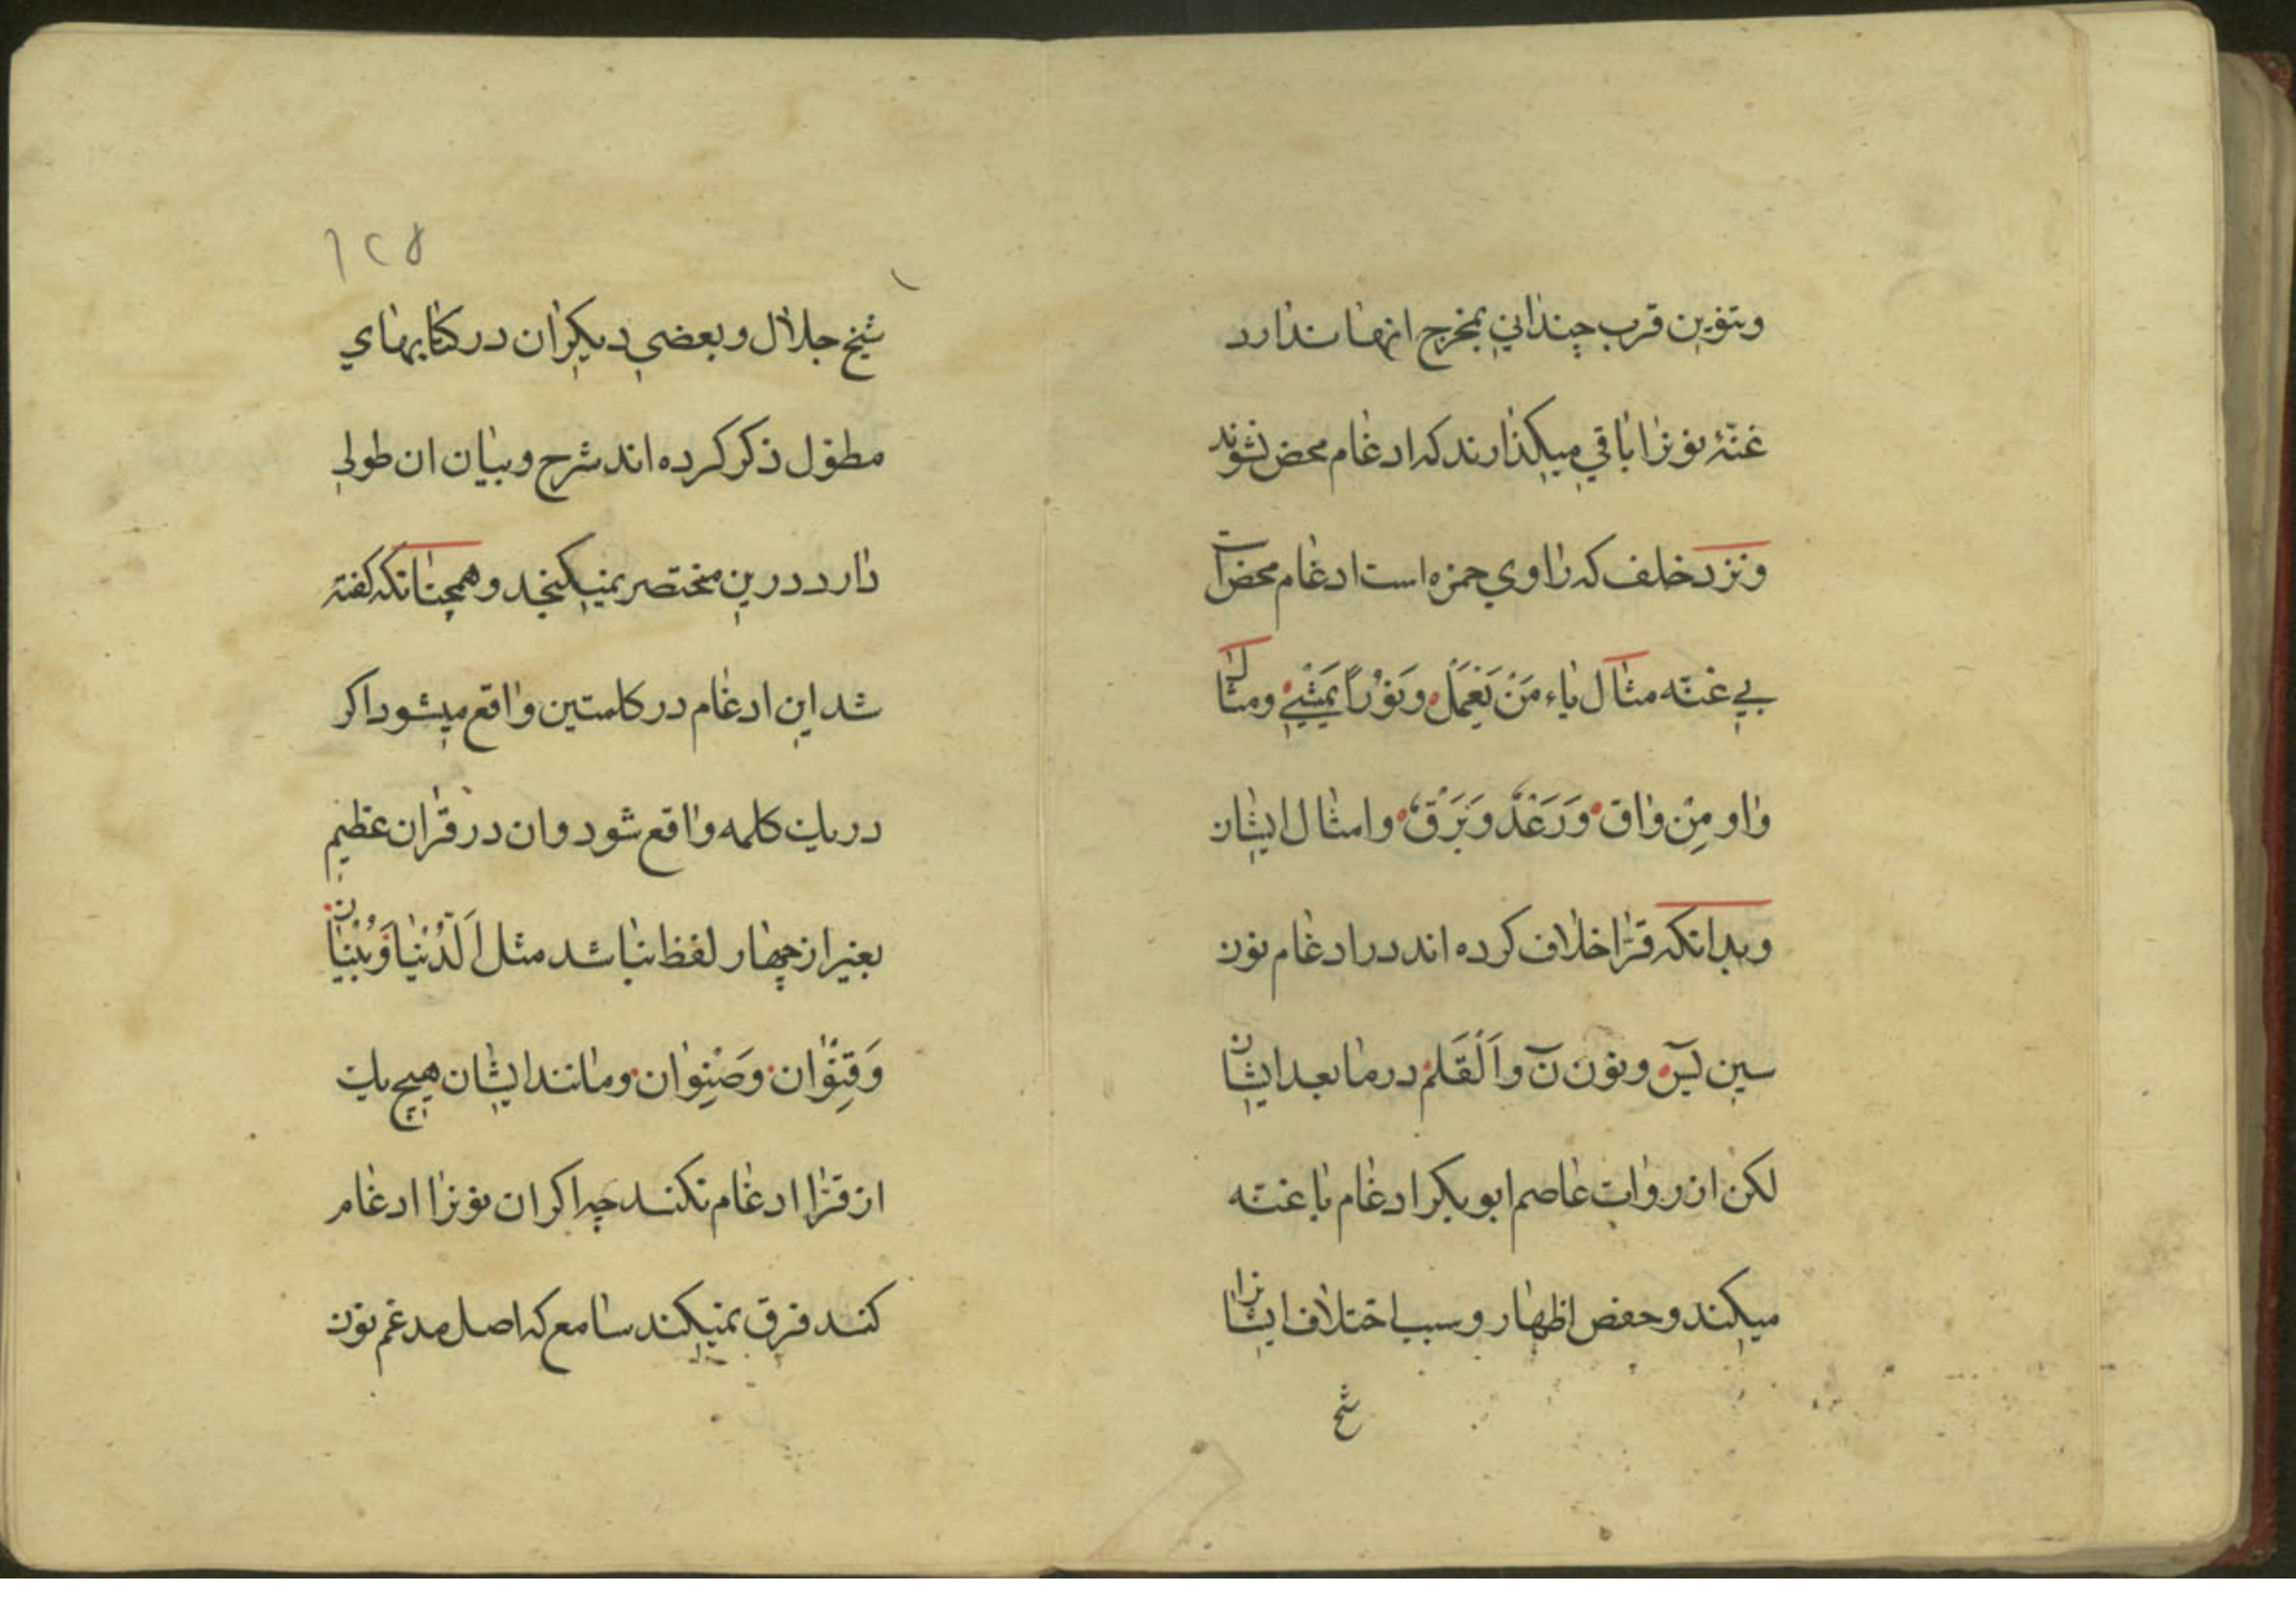 وتنوین قرب چندانی بمخرج انها ندارد
غنّهٔ نونرا باقی میکذارند که ادغام محض نشوند
ونزد خلف که راوی حمزه است ادغام محض است
بی غنّه مثال یاء مَنْ یَعْمَلْ ونُوْراً یَمْشِیْ ومثال
واو مِنْ واق وَرَعْدٌ وَبَرْقٌ وامثال ایشان
وبدانکه قرّا خلاف کرده اند در ادغام نون
سین یسٓ ونون نٓ واَلْقَلَمْ در ما بعد ایشان
لکن از روات عاصم ابو بکر ادغام با غنّه
میکند وحفص اظهار وسبب اختلاف ایشانرا
شیخ
١٢٥
شیخ جلال وبعضی دیکران در کتابهای
مطوّل ذکر کرده اند شرح وبیان ان طولی
دارد درین مختصر نمیکنجد وهمچنانکه کفته
شد این ادغام در کلمتین واقع میشود اکر
در یك کلمه واقع شود وان در قرآن عظیم
بغیر از چهار لفظ نباشد مثل اَلدُّنْیَا وَبُنْیَان
وَقِنْوَان وَصِنْوَان ومانند ایشان هیچ یك
از قرّا ادغام نکنند چه اکر ان نونرا ادغام
کنند فرق نمیکند سامع که اصل مدغم نون